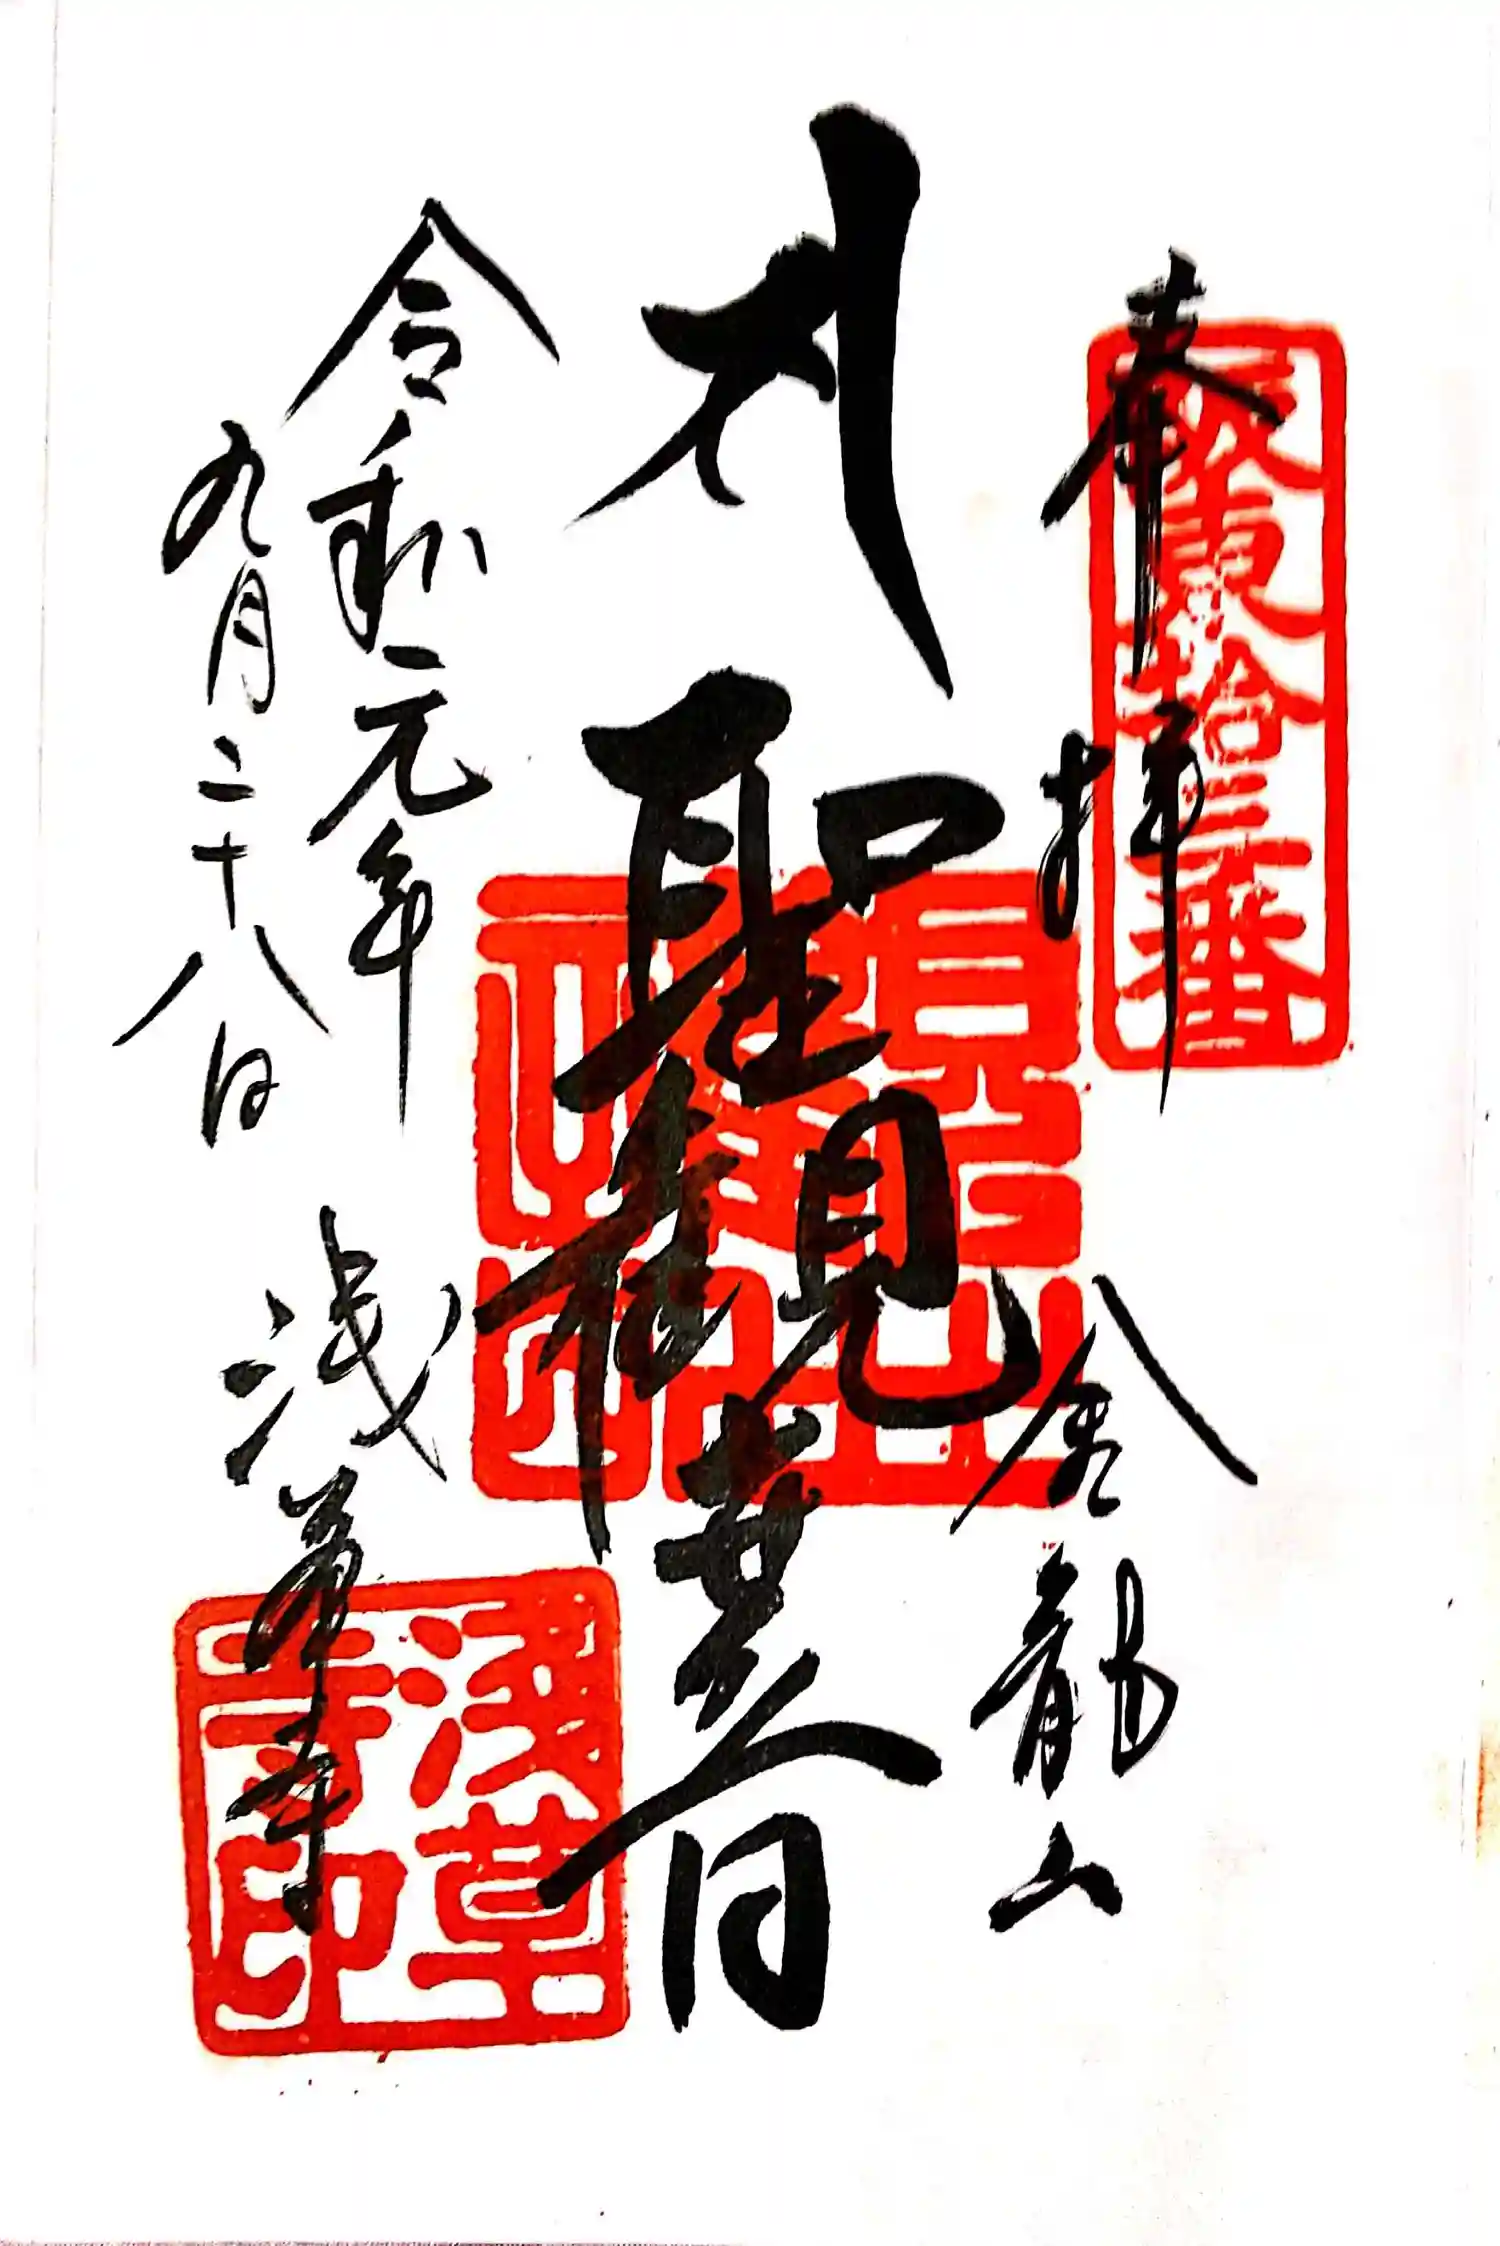 奉拝
坂東拾三番
金龍山
聖観世音
令和元年
九月二十八日
浅草寺
淺草寺印